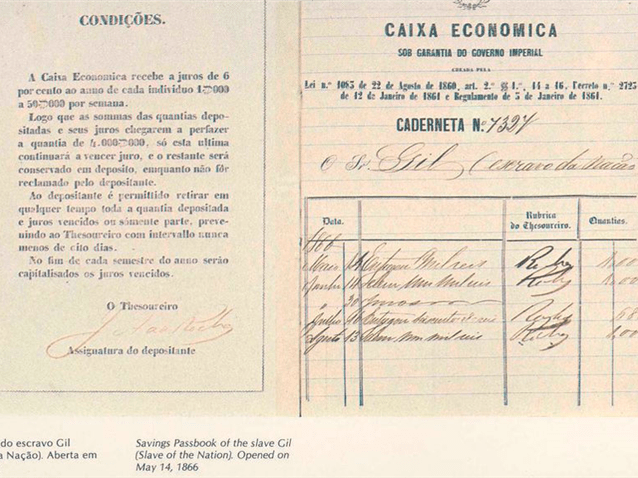 CONDIÇÕES.
A Caixa Economica recebe a juros de 6
por cento ao anno de cada individuo 1$000
a 50$000 por semana.
Logo que as sommas das quantias depo-
sitadas e seus juros chegarem a perfazer
a quantia de 4.000$000, só esta ultima
continuará a vencer juro, e o restante será
conservado em deposito, emquanto não fôr
reclamado pelo depositante.
Ao depositante é permittido retirar em
qualquer tempo toda a quantia depositada
e juros vencidos ou sómente parte, preve-
nindo ao Thesoureiro com intervallo nunca
menos de oito dias.
No fim de cada semestre do anno serão
capitalisados os juros vencidos.
O Thesoureiro
Assignatura do depositante
CAIXA ECONOMICA
SOB GARANTIA DO GOVERNO IMPERIAL
CREADA PELA
Lei n.º 1083 de 22 de Agosto de 1860, art. 2.º §§ 1.º, 14 a 16, Decreto n.º 2723
de 12 de Janeiro de 1861 e Regulamento de 5 de Janeiro de 1861.
CADERNETA N.º 7327
O Sr. Gil (escravo da Nação
Data. Rubrica do Thesoureiro. Quantias.
1866
Junho 18
30
Julho
Agosto 13
do escravo Gil
a Nação). Aberta em
Savings Passbook of the slave Gil
(Slave of the Nation). Opened on
May 14, 1866